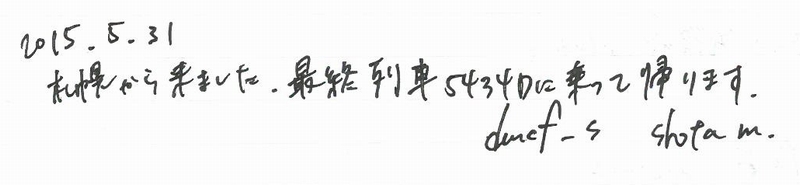 2015.5.31
札幌から来ました.最終列車5434Dに乗って帰ります.
dmcf_s shota m.